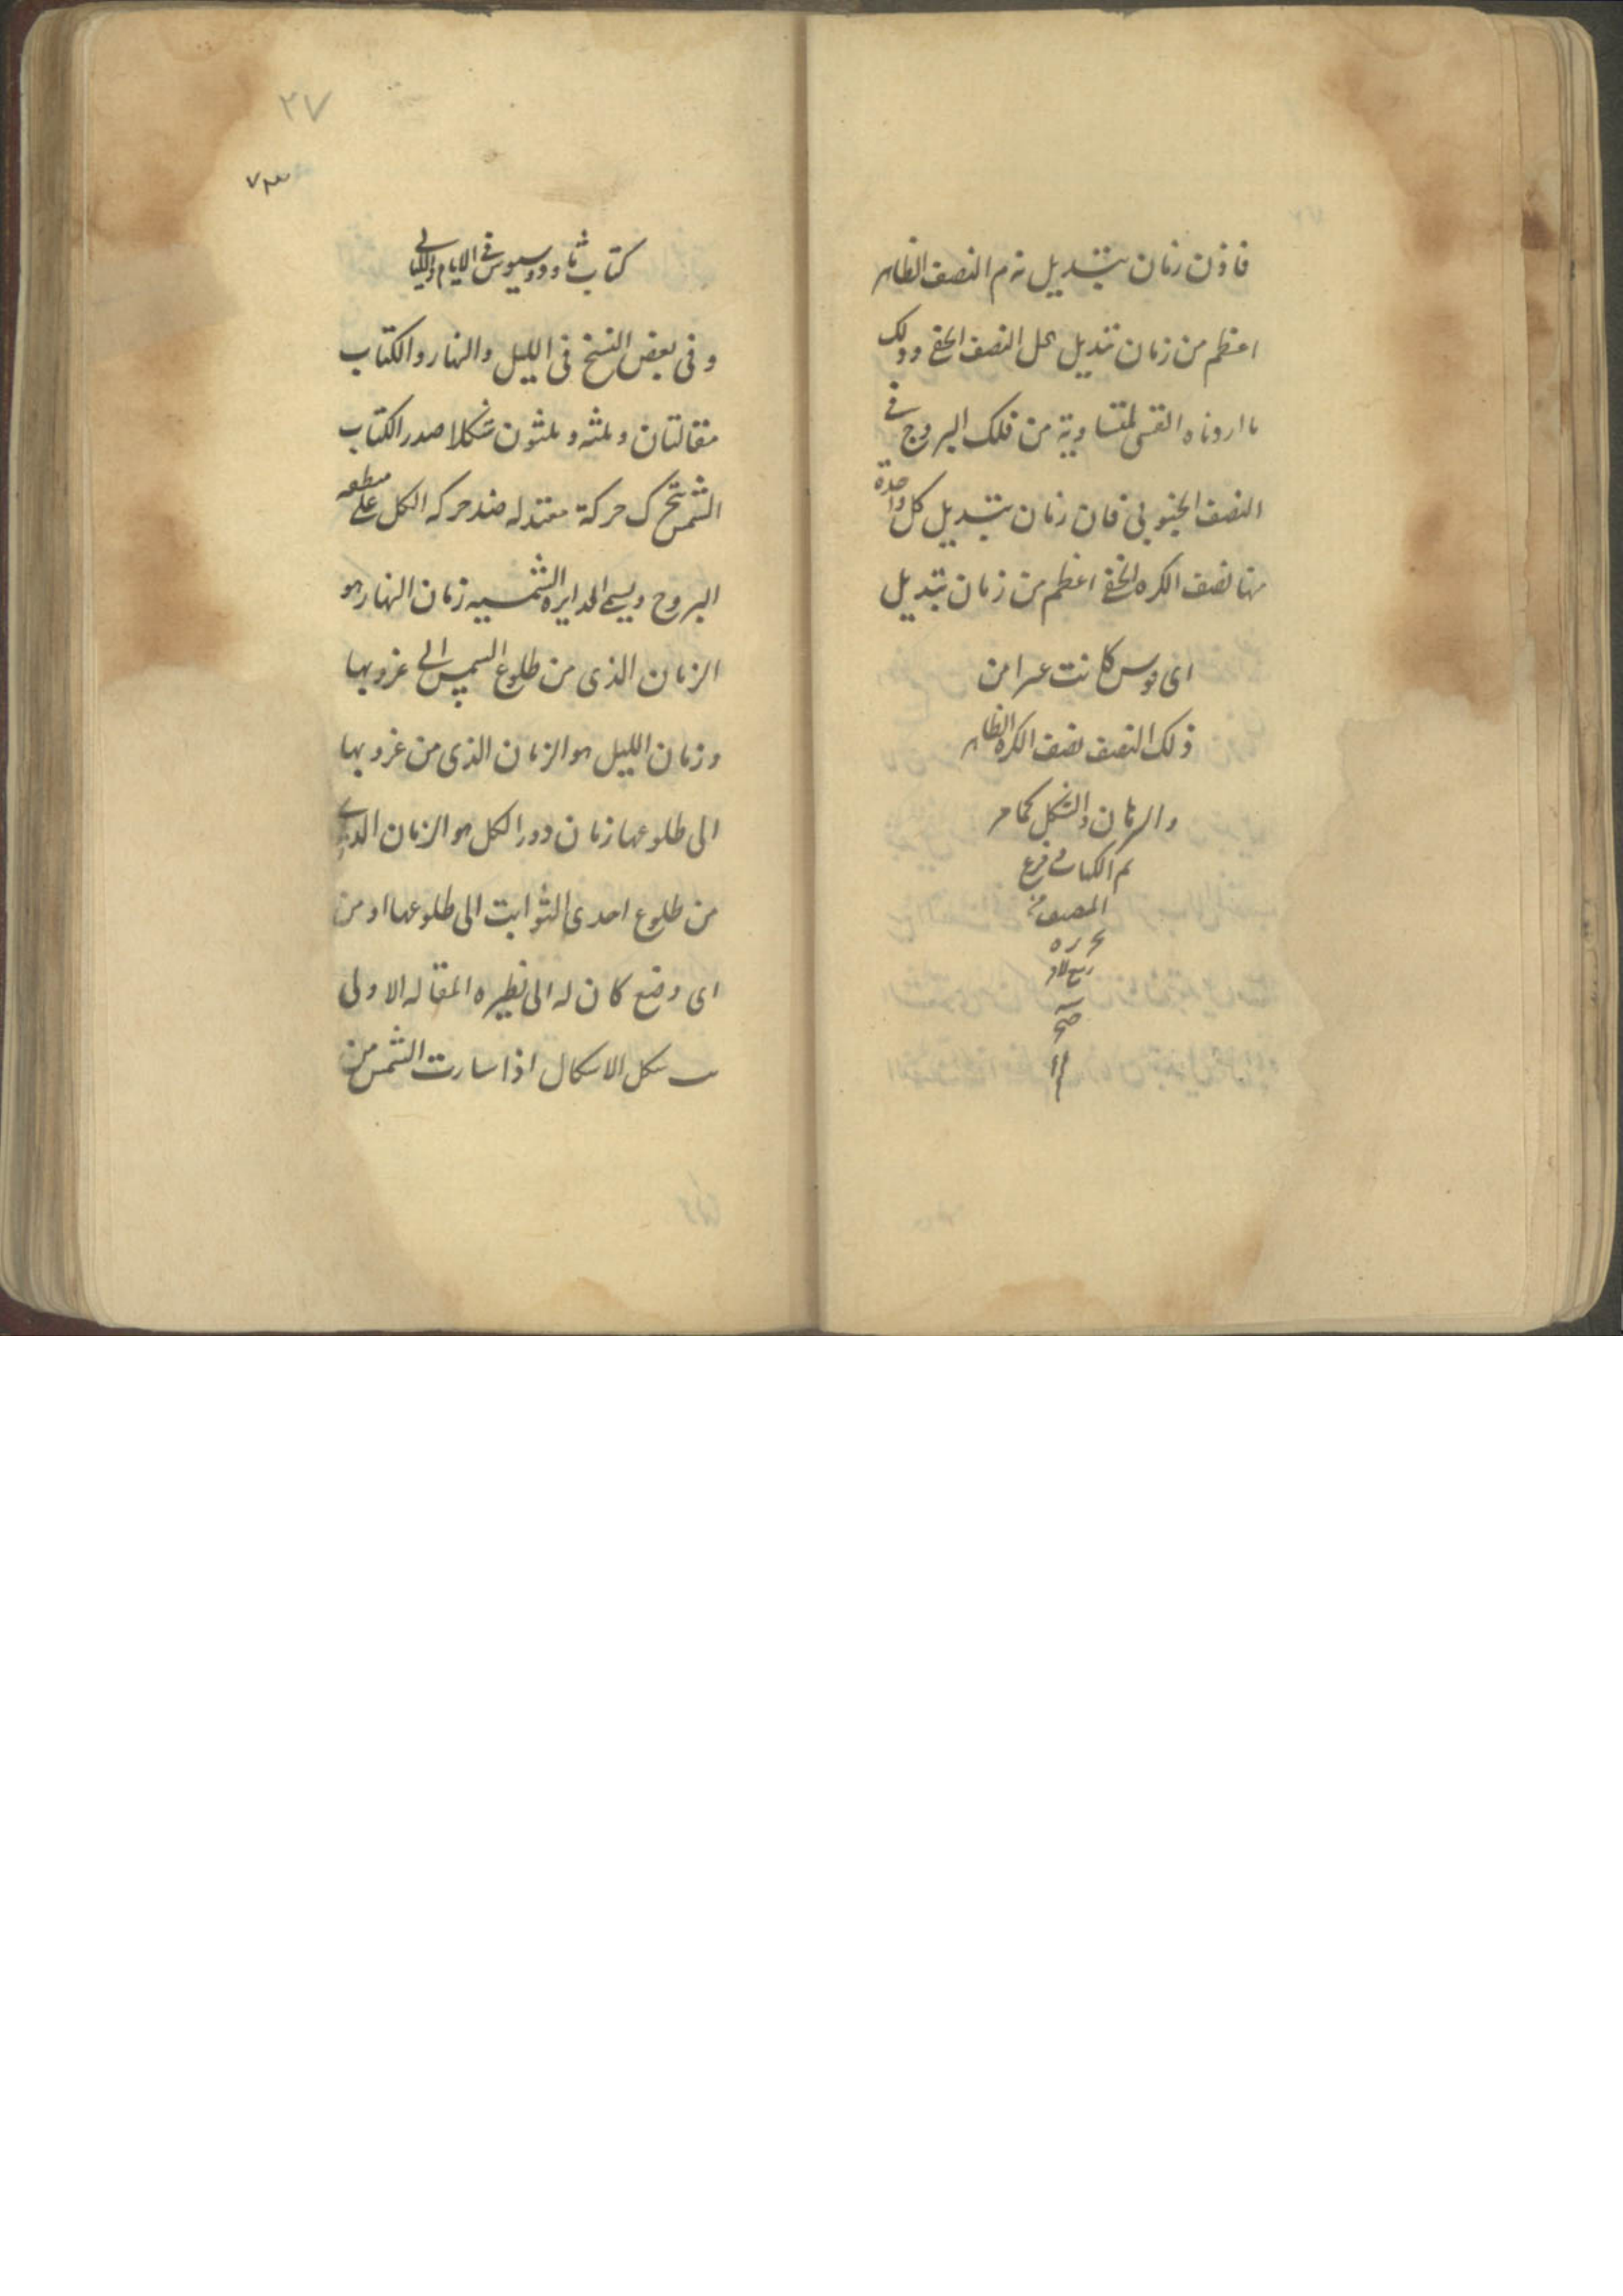 فاذن زمان تبديل نه م النصف الظاهر
اعظم من زمان تبديل حل النصف الخفى وذلك
ما اردناه القسى المتساوية من فلك البروج فى
النصف الجنوبى فان زمان تبديل كل واحدة
منها نصف الكره الخفى اعظم من زمان تبديل
اى قوس كانت من
ذلك النصف نصف الكره الظاهر
والبرهان والشكل كما مر
تم الكتاب فرغ
المصنف
صح
٢٧
كتاب ثاوذوسيوس فى الايام والليالى
وفى بعض النسخ فى الليل والنهار والكتاب
مقالتان وثلثه وثلثون شكلا صدر الكتاب
الشمس تتحرك حركة معتدله ضد حركه الكل على منطقه
البروج ويسمى الدايره الشمسيه زمان النهار هو
الزمان الذى من طلوع الشمس الى غروبها
وزمان الليل هو الزمان الذى من غروبها
الى طلوعها زمان دور الكل هو الزمان الذى
من طلوع احدى الثوابت الى طلوعها او من
اى وضع كان له الى نظيره المقاله الاولى
شكل الاشكال اذا سارت الشمس من